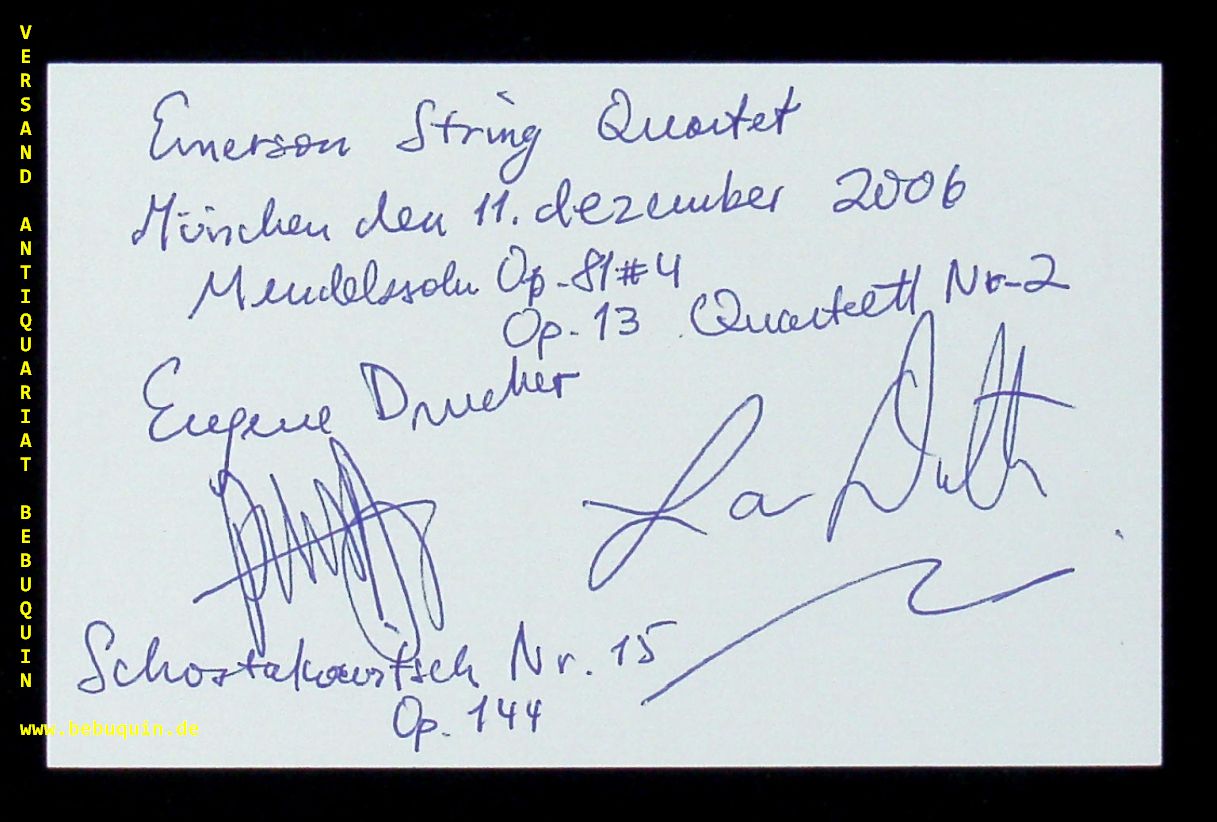 VERSAND ANTIQUARIAT BEBUQUIN
Emerson String Quartet
München den 11. dezember 2006
Mendelssohn Op. 81#4
Op. 13 Quartett Nr. 2
Eugene Drucker
Schostakowitsch Nr. 15
Op. 144
www.bebuquin.de